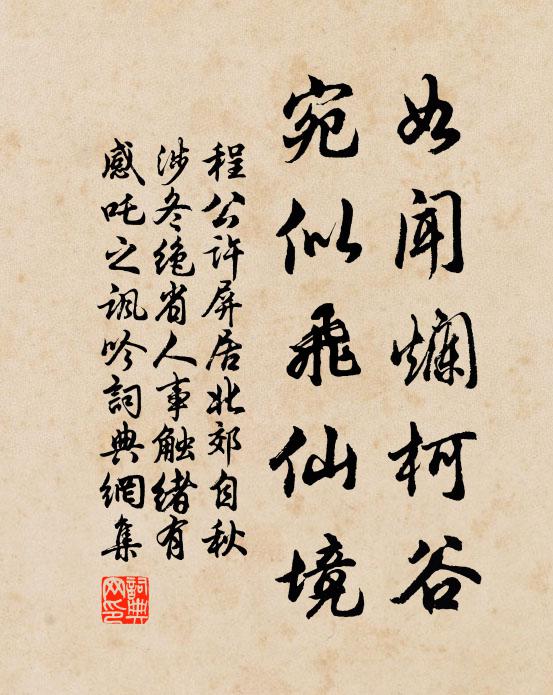 如聞爛柯谷
宛似飛仙境
程公許屏居北郊自秋
涉冬絶省人事触緒有
感吒之諷吟詞典網集
詞典网印